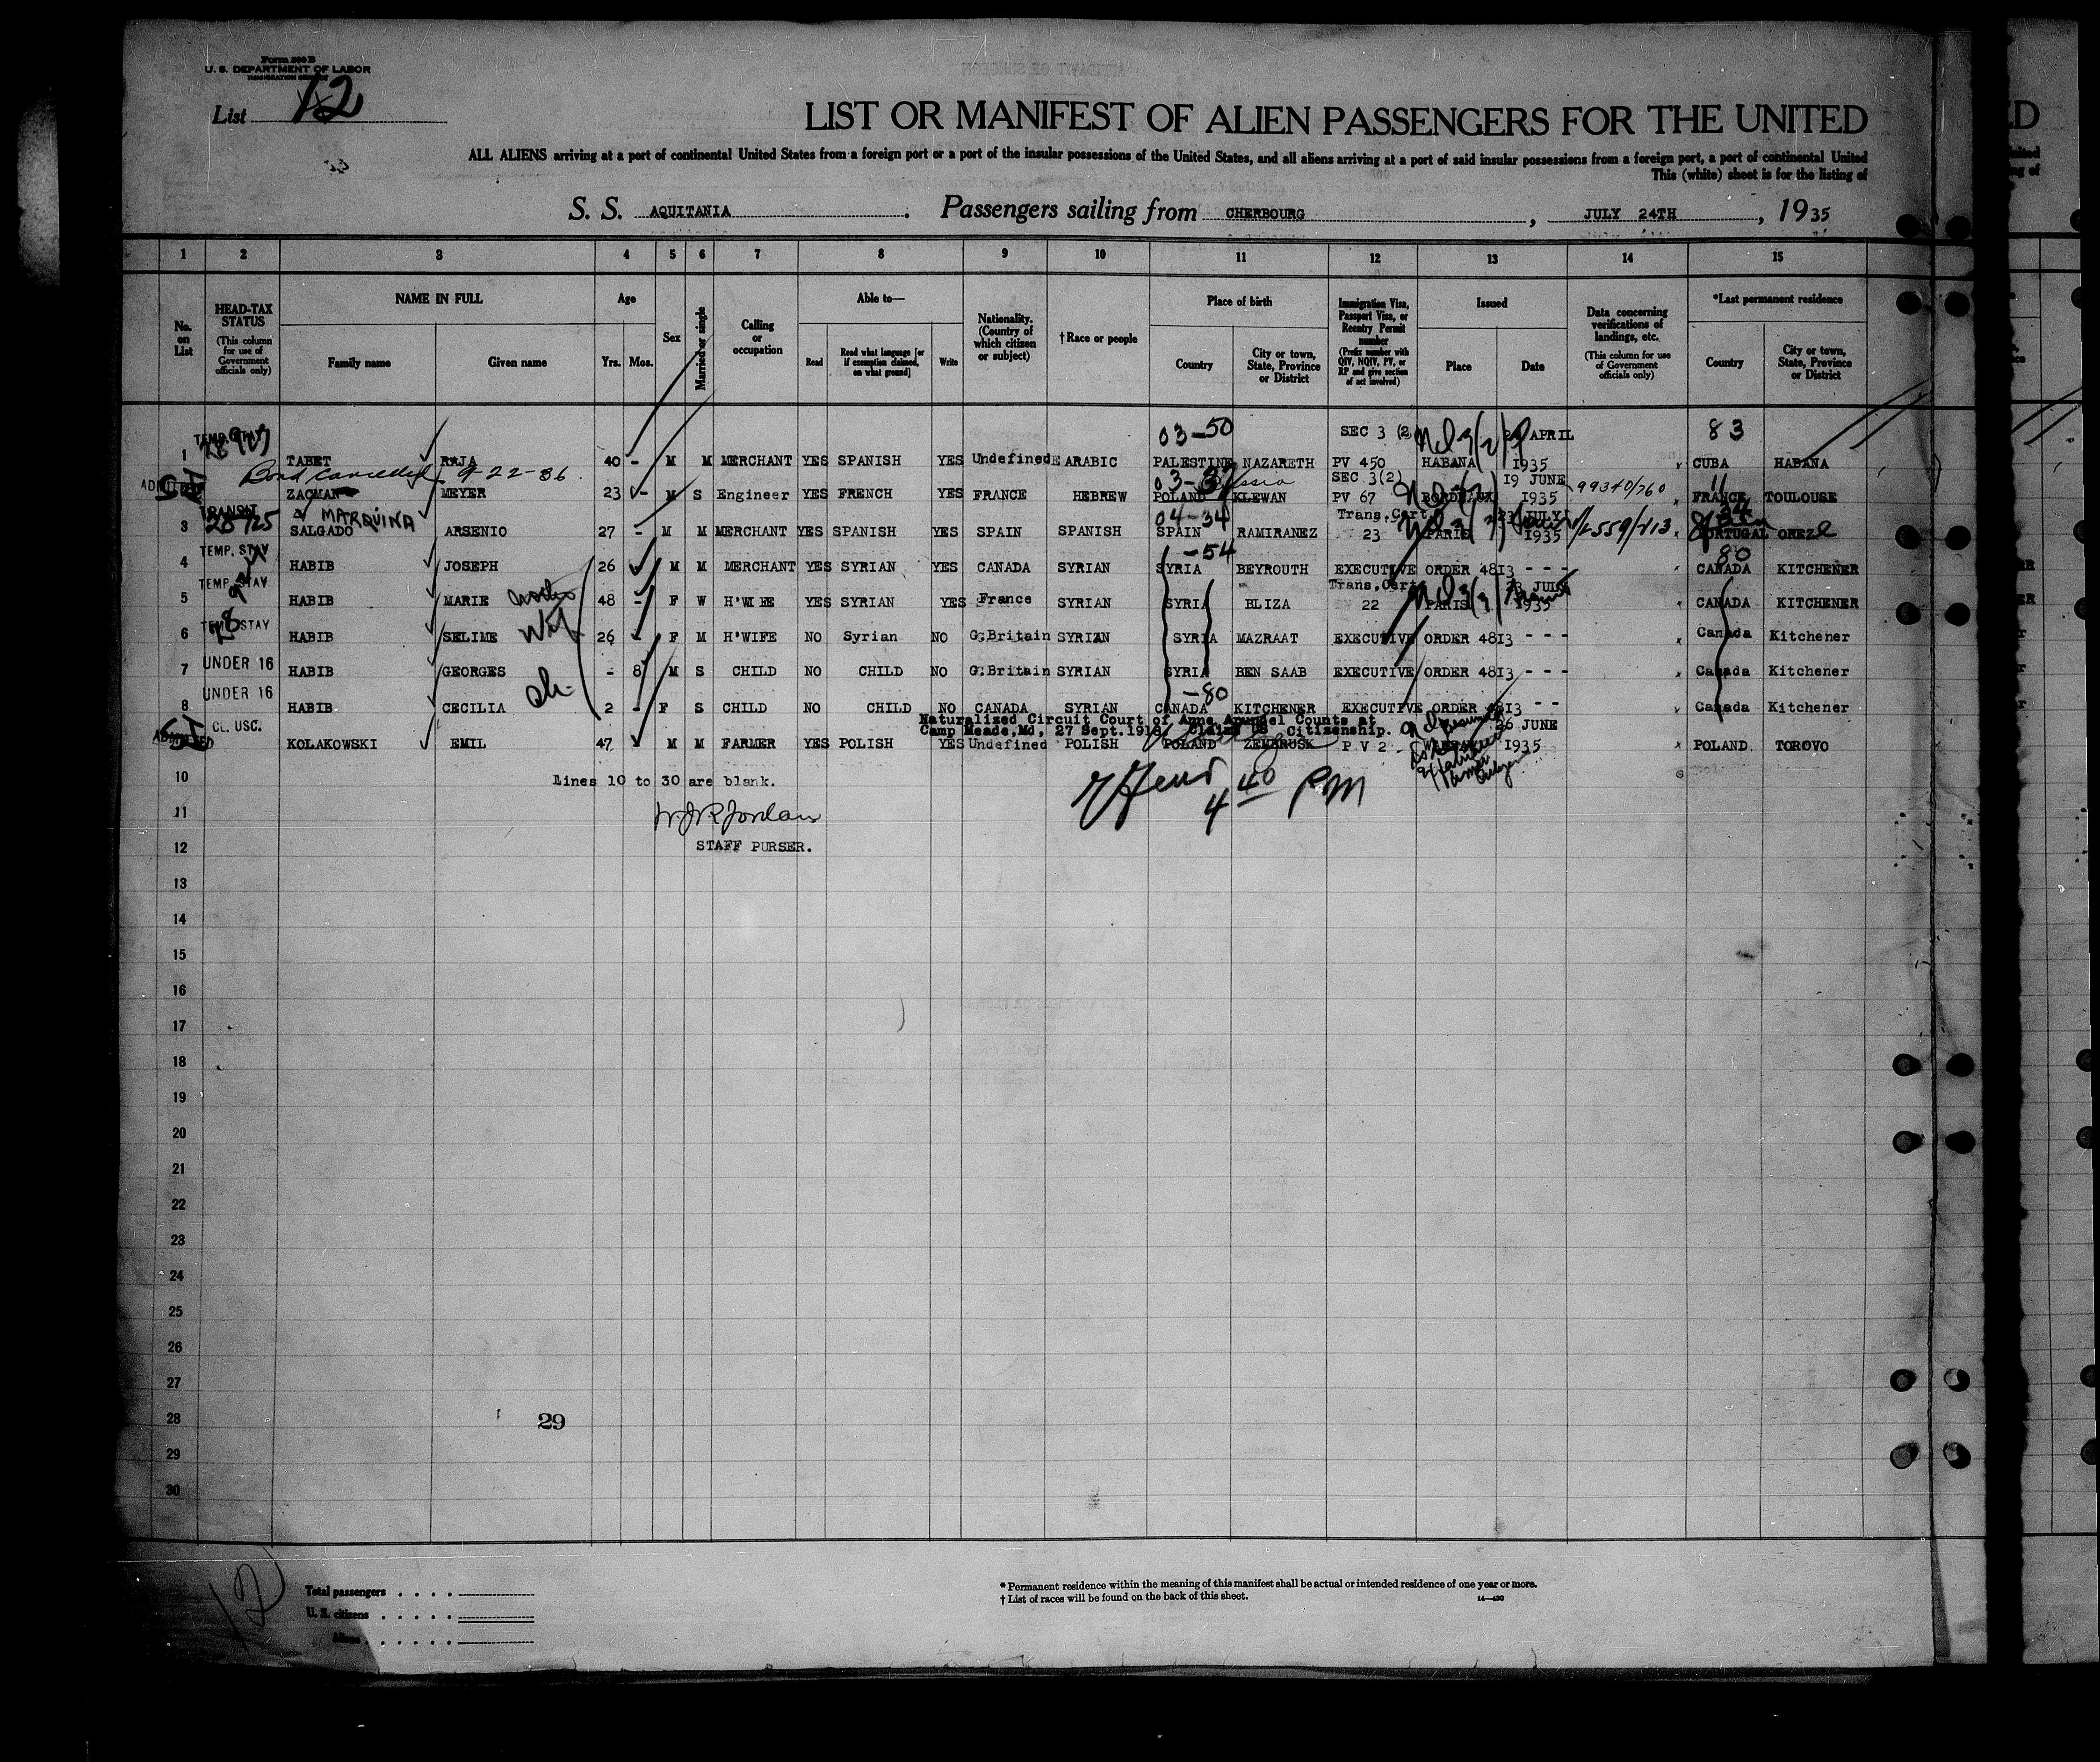 Form 500 B
U. S. DEPARTMENT OF LABOR
IMMIGRATION SERVICE
List 12
LIST OR MANIFEST OF ALIEN PASSENGERS FOR THE UNITED
ALL ALIENS arriving at a port of continental United States from a foreign port or a port of the insular possessions of the United States, and all aliens arriving at a port of said insular possessions from a foreign port, a port of continental United
This (white) sheet is for the listing of
S. S. AQUITANIA . Passengers sailing from CHERBOURG , JULY 24TH , 1935
1 2 3 4 5 6 7 8 9 10 11 12 13 14 15
No. on List
HEAD-TAX STATUS (This column for use of Government officials only)
NAME IN FULL Family name Given name
Age Yrs. Mos.
Sex
Married or single
Calling or occupation
Able to— Read Read what language [or if exemption claimed, on what ground] Write
Nationality. (Country of which citizen or subject)
† Race or people
Place of birth Country City or town, State, Province or District
Immigration Visa, Passport Visa, or Reentry Permit number (Prefix number with QIV, NQIV, PV, or RP and give section of act involved)
Issued Place Date
Data concerning verifications of landings, etc. (This column for use of Government officials only)
*Last permanent residence Country City or town, State, Province or District
TEMP. STAY 03-50 SEC 3 (2) APRIL 83
1 TABET RAJA 40 - M M MERCHANT YES SPANISH YES Undefined ARABIC PALESTINE NAZARETH PV 450 HABANA 1935 CUBA HABANA
Bond Cancelled 9-22-36 03-37 Russia SEC 3(2) 19 JUNE 11
ADMITTED SI ZACMAN MEYER 23 - M S Engineer YES FRENCH YES FRANCE HEBREW POLAND KLEWAN PV 67 BORDEAUX 1935 99340/760 FRANCE TOULOUSE
TRANSIT MARQUINA 04-34 Trans.Cert. 23 JULY
3 28925 SALGADO ARSENIO 27 - M M MERCHANT YES SPANISH YES SPAIN SPANISH SPAIN RAMIRANEZ 23 PARIS 1935 PORTUGAL
TEMP. STAY -54 80
4 HABIB JOSEPH 26 M M MERCHANT YES SYRIAN YES CANADA SYRIAN SYRIA BEYROUTH EXECUTIVE ORDER 4813 - - - CANADA KITCHENER
TEMP. STAY Trans.Cert. 23 JULY
5 HABIB MARIE 48 - F W H'WIFE YES SYRIAN YES France SYRIAN SYRIA BLIZA 22 PARIS 1935 CANADA KITCHENER
TEMP. STAY
6 HABIB SELIME Wife 26 - F M H'WIFE NO Syrian NO G.Britain SYRIAN SYRIA MAZRAAT EXECUTIVE ORDER 4813 - - - Canada Kitchener
UNDER 16
7 HABIB GEORGES - 8 M S CHILD NO CHILD NO G.Britain SYRIAN SYRIA BEN SAAB EXECUTIVE ORDER 4813 - - - Canada Kitchener
UNDER 16 ch -80
8 HABIB CECILIA 2 - F S CHILD NO CHILD NO CANADA SYRIAN CANADA KITCHENER EXECUTIVE ORDER 4813 - - Canada Kitchener
CL. USC. Naturalized Circuit Court of Anne Arundel Counts at
Camp Meade,Md, 27 Sept.1918. Claims US Citizenship. 26 JUNE
ADMITTED SI KOLAKOWSKI EMIL 47 M M FARMER YES POLISH YES Undefined POLISH POLAND ZEMBRUSK P V 2 1935 POLAND TOROVO
10 Lines 10 to 30 are blank.
4 40 PM
11 W J R Jordan
12 STAFF PURSER.
13
14
15
16
17
18
19
20
21
22
23
24
25
26
27
28 29
29
30
12
Total passengers
U. S. citizens
Aliens
* Permanent residence within the meaning of this manifest shall be actual or intended residence of one year or more.
† List of races will be found on the back of this sheet. 14—430